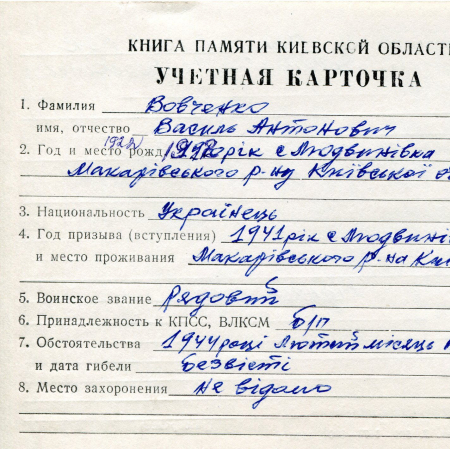 КНИГА ПАМЯТИ КИЕВСКОЙ ОБЛАСТ
УЧЕТНАЯ КАРТОЧКА
1. Фамилия Вовченко
имя, отчество Василь Антонович
2. Год и место рожд рік с Людвинівка
Макарівського р-ну Київської
3. Национальность Українець
4. Год призыва (вступления) 1941 рік с Людвині
и место проживания Макарівського р-на Ки
5. Воинское звание Рядовий
6. Принадлежность к КПСС, ВЛКСМ б/п
7. Обстоятельства 1944 році Лютий місяць
и дата гибели безвісті
8. Место захоронения не відомо